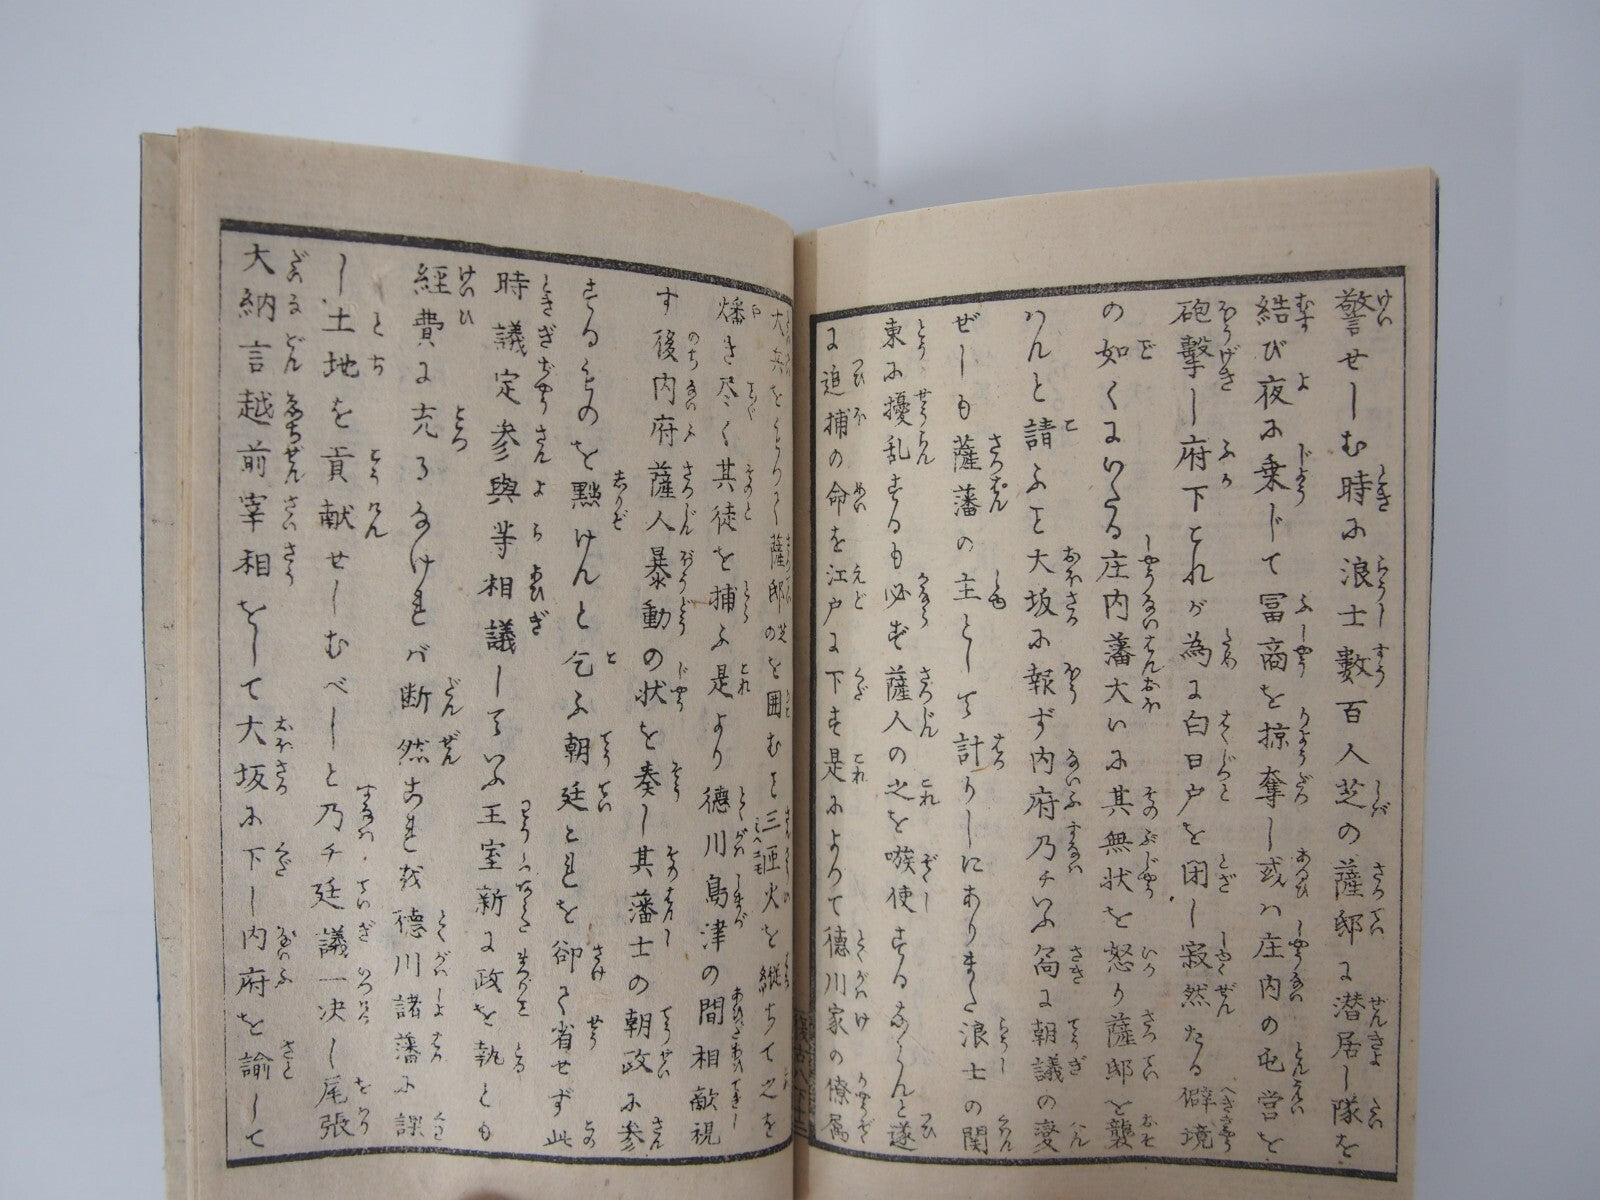 警せしむ時に浪士數百人芝の薩邸に潜居し隊を
結び夜に乗じて冨商を掠奪し或ハ庄内の屯営を
砲撃し府下これが為に白日戸を閉し寂然たる僻境
の如くにいたる庄内藩大いに其無状を怒り薩邸を襲
ハんと請ふて大坂に報ず内府乃チいふ曩に朝議の変
ぜしも薩藩の主として計りしにありまた浪士の関
東に擾乱するも必ず薩人の之を嗾使するならんと遂
に追捕の命を江戸に下す是によりて徳川家の僚属
大兵をもつて薩邸芝のを囲むこと三匝火を縦ちて之を
燔き尽く其徒を捕ふ是より徳川島津の間相敵視
す後内府薩人暴動の状を奏し其藩士の朝政に参
するものを黜けんと乞ふ朝廷これを卻て省せず此
時議定参與等相議していふ王室新に政を執とも
經費に充るなければ断然これを徳川諸藩に課
し土地を貢献せしむべしと乃チ廷議一决し尾張
大納言越前宰相をして大坂に下し内府を諭して